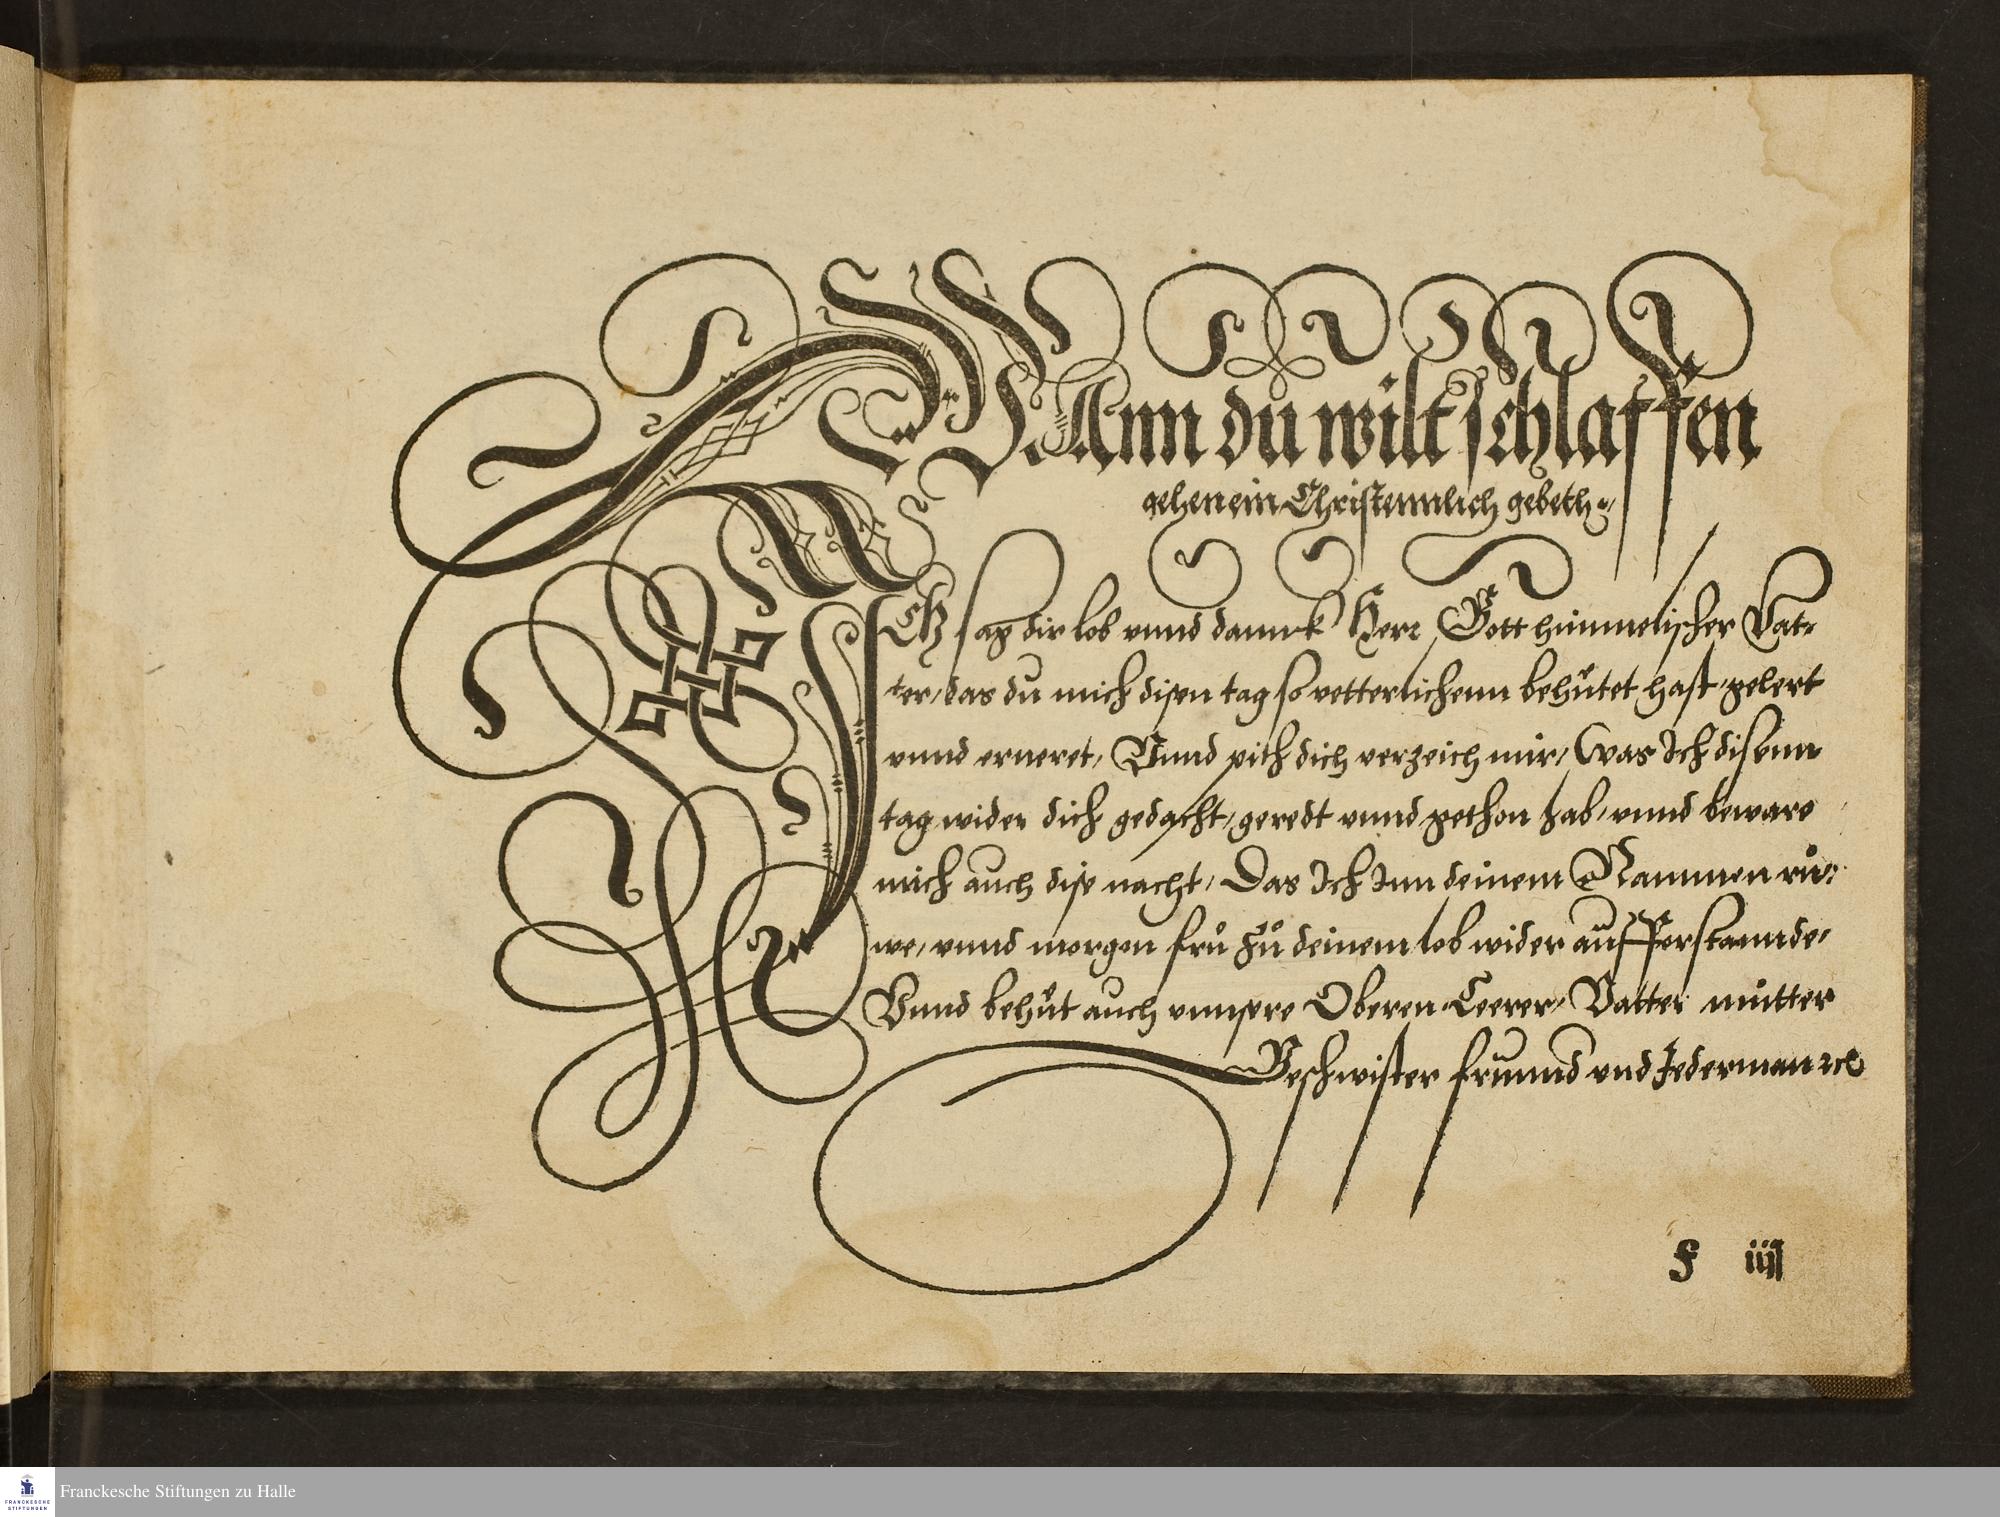 WAnn du wilt schlaffen
gehen ein Christennlich gebeth
ICh sag dir lob vnnd dannck Herr Gott himmelischer Vat-
ter, das du mich disen tag so vetterlichenn behůtet hast, gelert
vnnd erneret, Vnnd pith dich verzeich mir, Was Ich disenn
tag wider dich gedacht, geredt vnnd gethon hab, vnnd beware
mich auch dise nacht, Das Ich Inn deinem Nammen rů-
we, vnnd morgen frů zů deinem lob wider aufferstannde,
Vnnd behůt auch vnnsere Oberen, Leerer, Vatter můtter
Geschwister frůnnd vnd Jederman ꝛc
F iiij
Franckesche Stiftungen zu Halle
FRANCKESCHE
STIFTUNGEN